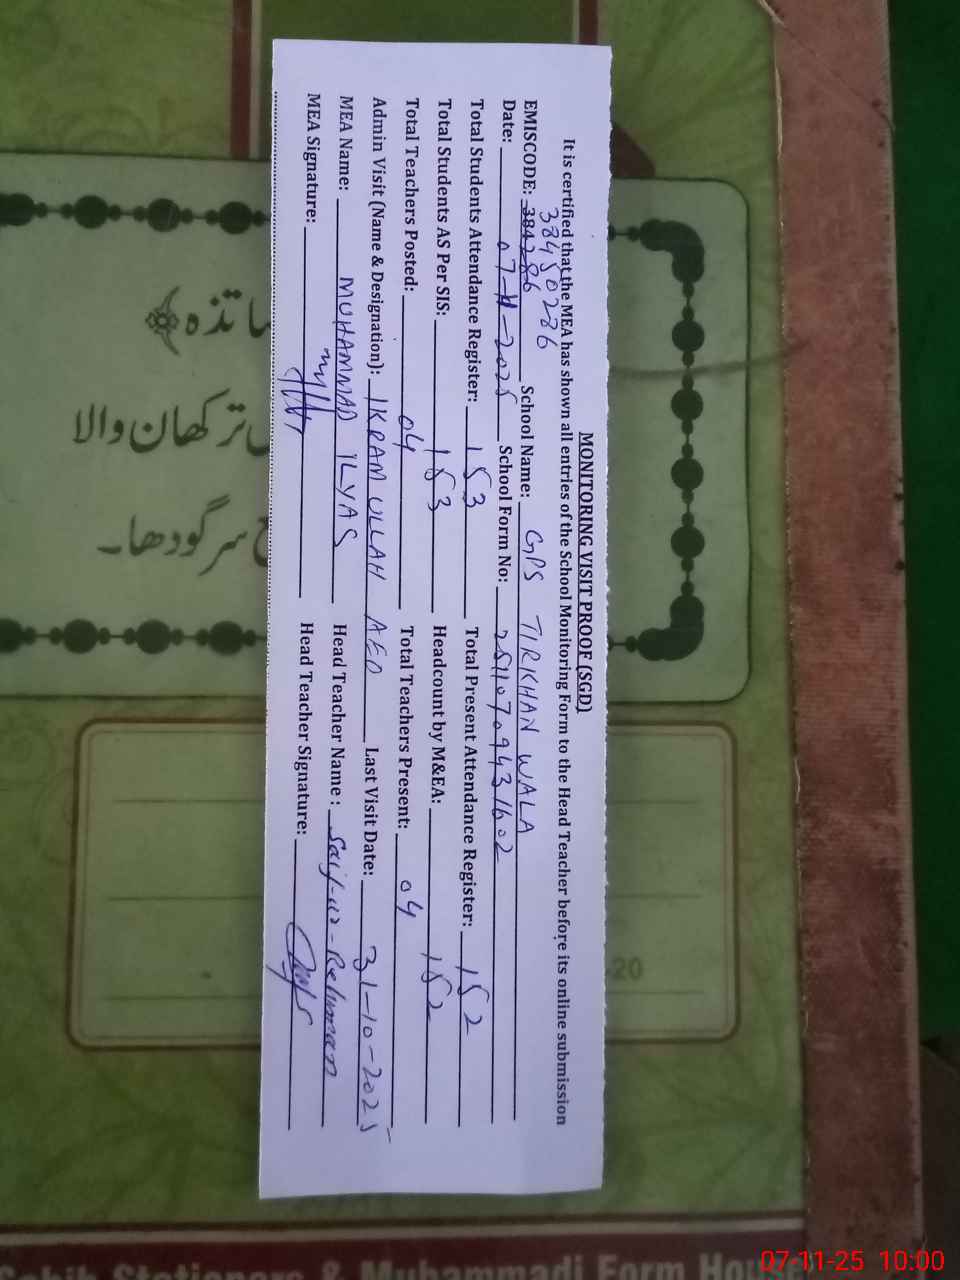 MONITORING VISIT PROOF (SGD)
It is certified that the MEA has shown all entries of the School Monitoring Form to the Head Teacher before its online submission
38450286
EMISCODE: School Name: GPS TIRKHAN WALA
Date: 07-11-2025 School Form No: 25110709431602
Total Students Attendance Register: 153 Total Present Attendance Register: 152
Total Students AS Per SIS: 153 Headcount by M&EA: 152
Total Teachers Posted: 04 Total Teachers Present: 04
Admin Visit (Name & Designation): IKRAM ULLAH AEO Last Visit Date: 31-10-2025
MEA Name: MUHAMMAD ILYAS Head Teacher Name : Saif-ur-Rehman
MEA Signature: Head Teacher Signature:
ترکھان والا
سرگودھا۔
-20
Sahib Stationers & Muhammadi Form House
07-11-25 10:00